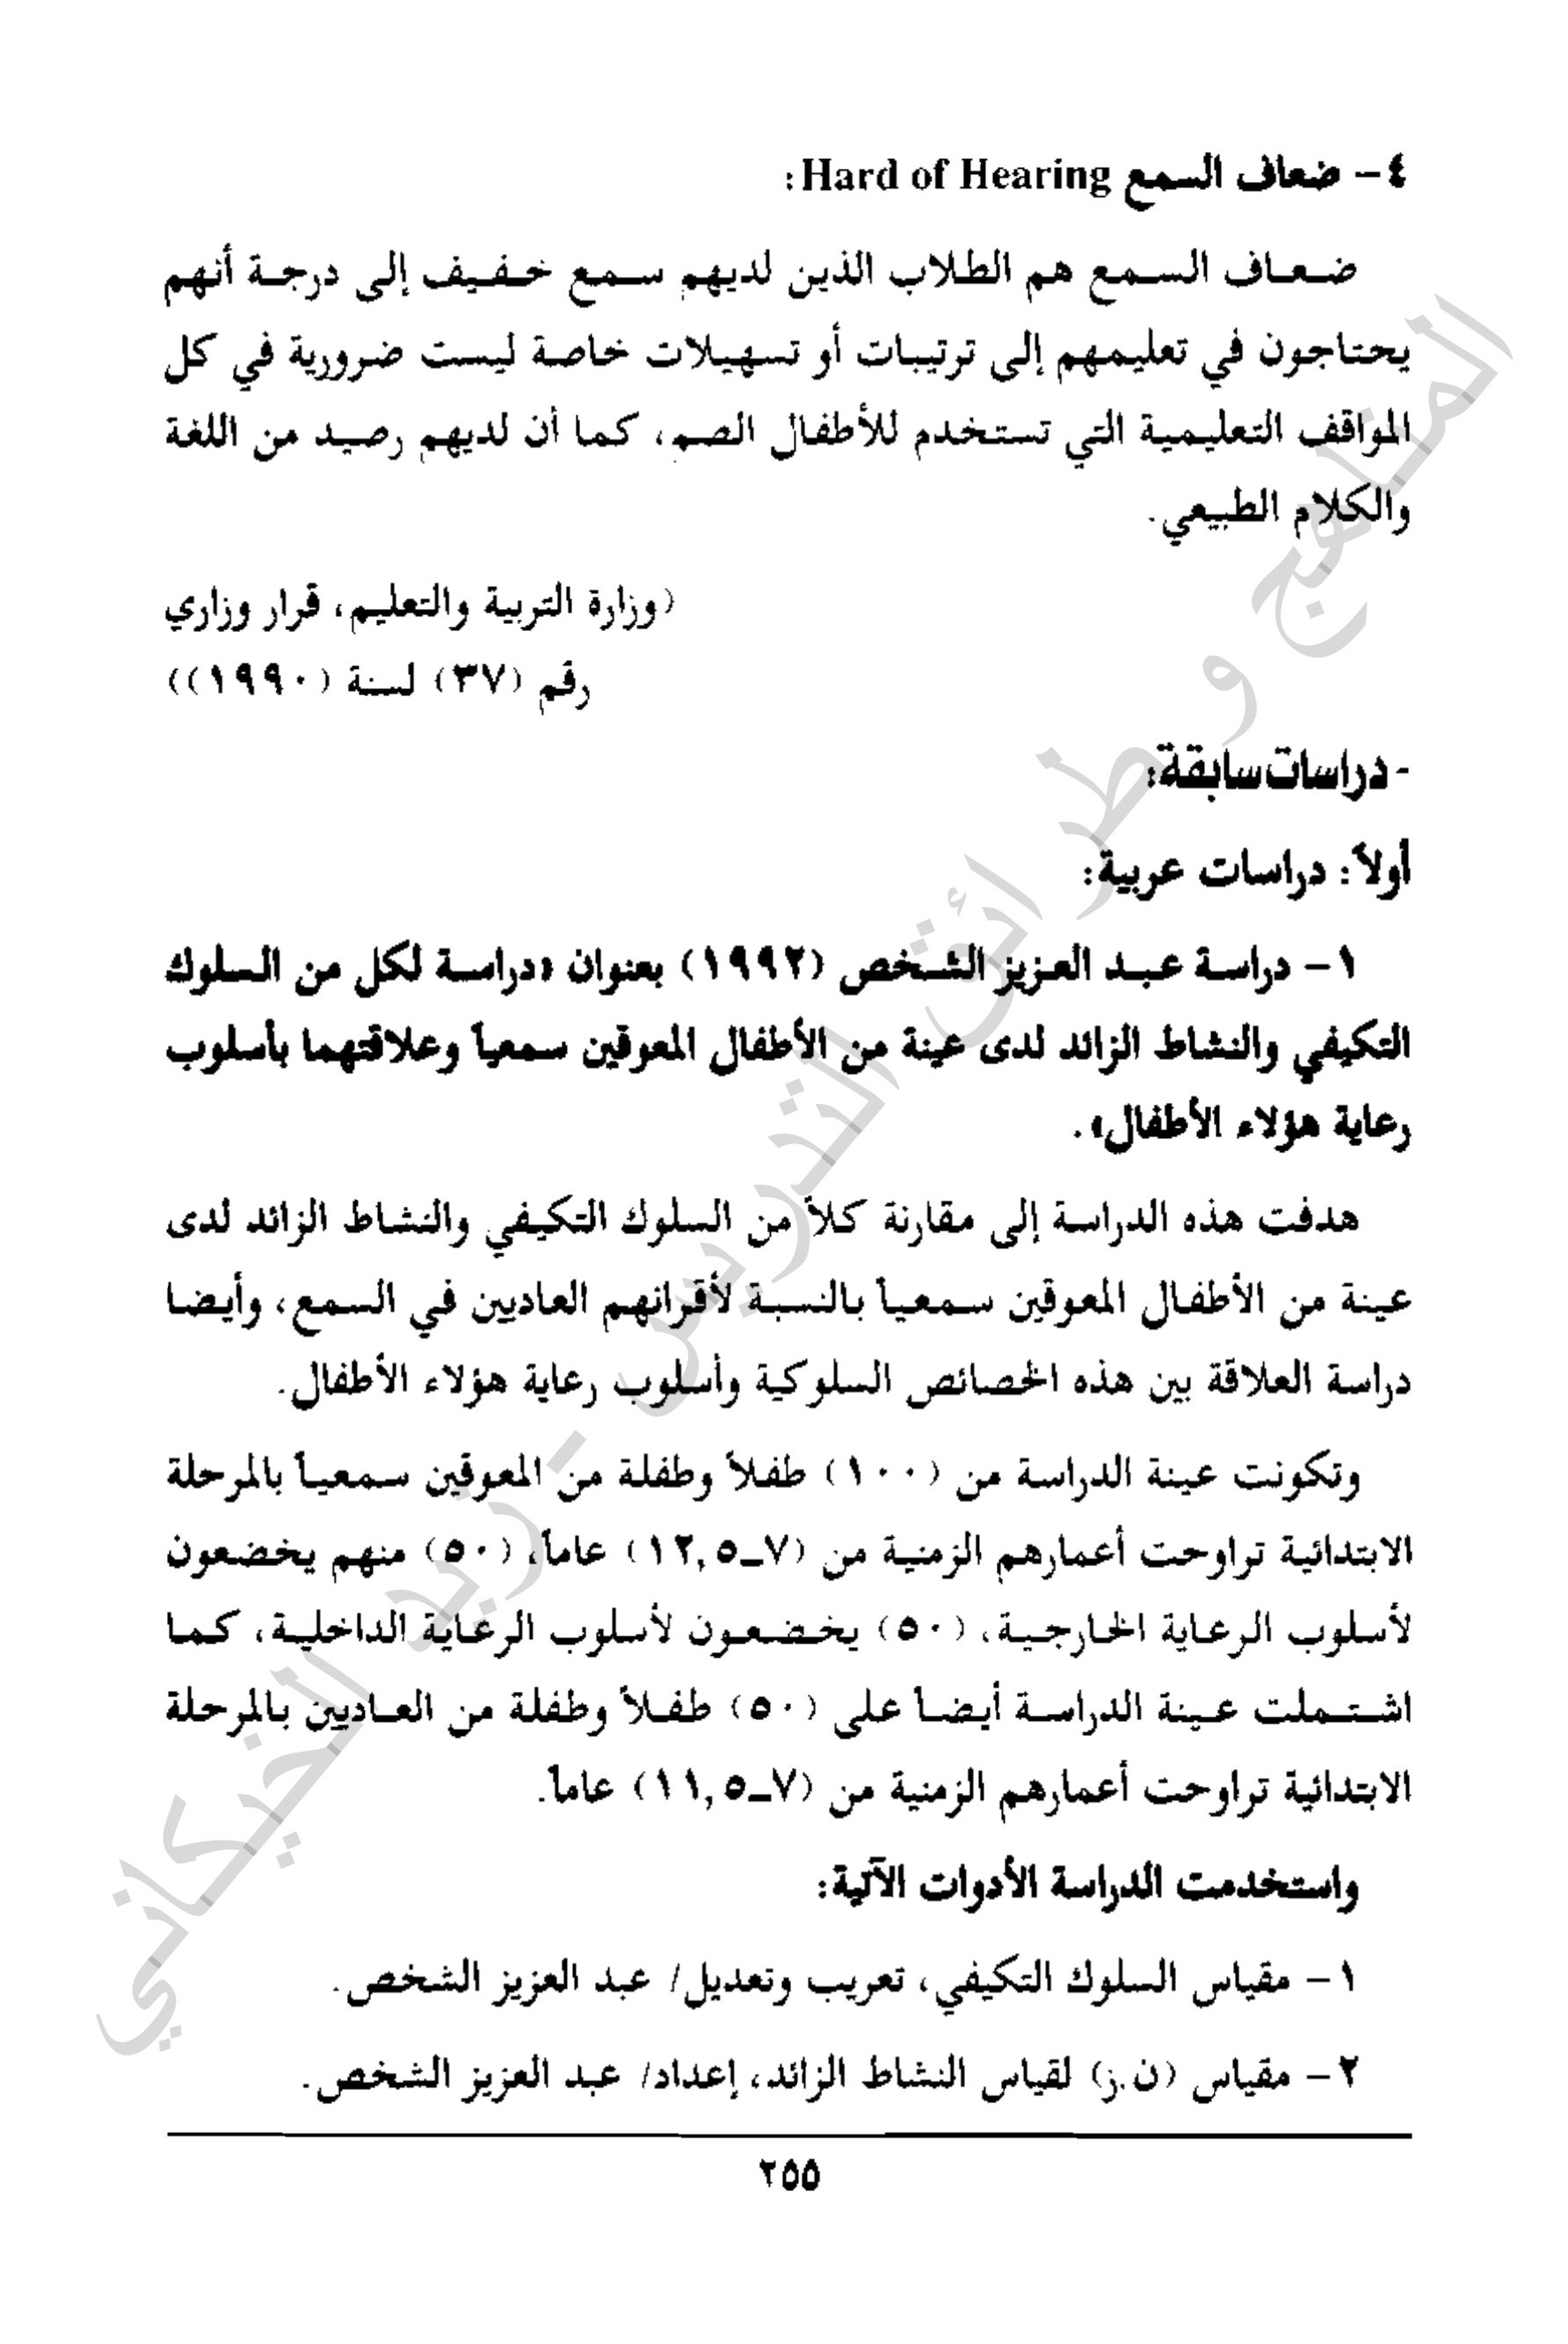 ٤ – ضعاف السمع Hard of Hearing:
ضعاف السمع هم الطلاب الذين لديهم سمع خفيف إلى درجة أنهم
يحتاجون في تعليمهم إلى ترتيبات أو تسهيلات خاصة ليست ضرورية في كل
المواقف التعليمية التي تستخدم للأطفال الصم، كما أن لديهم رصيد من اللغة
والكلام الطبيعي.
(وزارة التربية والتعليم، قرار وزاري
رقم (٣٧) لسنة (١٩٩٠))
- دراسات سابقة:
أولاً: دراسات عربية:
١ – دراسة عبد العزيز الشخص (١٩٩٢) بعنوان «دراسة لكل من السلوك
التكيفي والنشاط الزائد لدى عينة من الأطفال المعوقين سمعياً وعلاقتهما بأسلوب
رعاية هؤلاء الأطفال».
هدفت هذه الدراسة إلى مقارنة كلاً من السلوك التكيفي والنشاط الزائد لدى
عينة من الأطفال المعوقين سمعياً بالنسبة لأقرانهم العاديين في السمع، وأيضا
دراسة العلاقة بين هذه الخصائص السلوكية وأسلوب رعاية هؤلاء الأطفال.
وتكونت عينة الدراسة من (١٠٠) طفلاً وطفلة من المعوقين سمعياً بالمرحلة
الابتدائية تراوحت أعمارهم الزمنية من (٧ـ١٢,٥) عاماً، (٥٠) منهم يخضعون
لأسلوب الرعاية الخارجية، (٥٠) يخضعون لأسلوب الرعاية الداخلية، كما
اشتملت عينة الدراسة أيضاً على (٥٠) طفلاً وطفلة من العاديين بالمرحلة
الابتدائية تراوحت أعمارهم الزمنية من (٧ـ١١,٥) عاماً.
واستخدمت الدراسة الأدوات الآتية:
١ – مقياس السلوك التكيفي، تعريب وتعديل/ عبد العزيز الشخص.
٢ – مقياس (ن.ز) لقياس النشاط الزائد، إعداد/ عبد العزيز الشخص.
٢٥٥
المناهج و طرائق التدريس - زيد الخيكاني